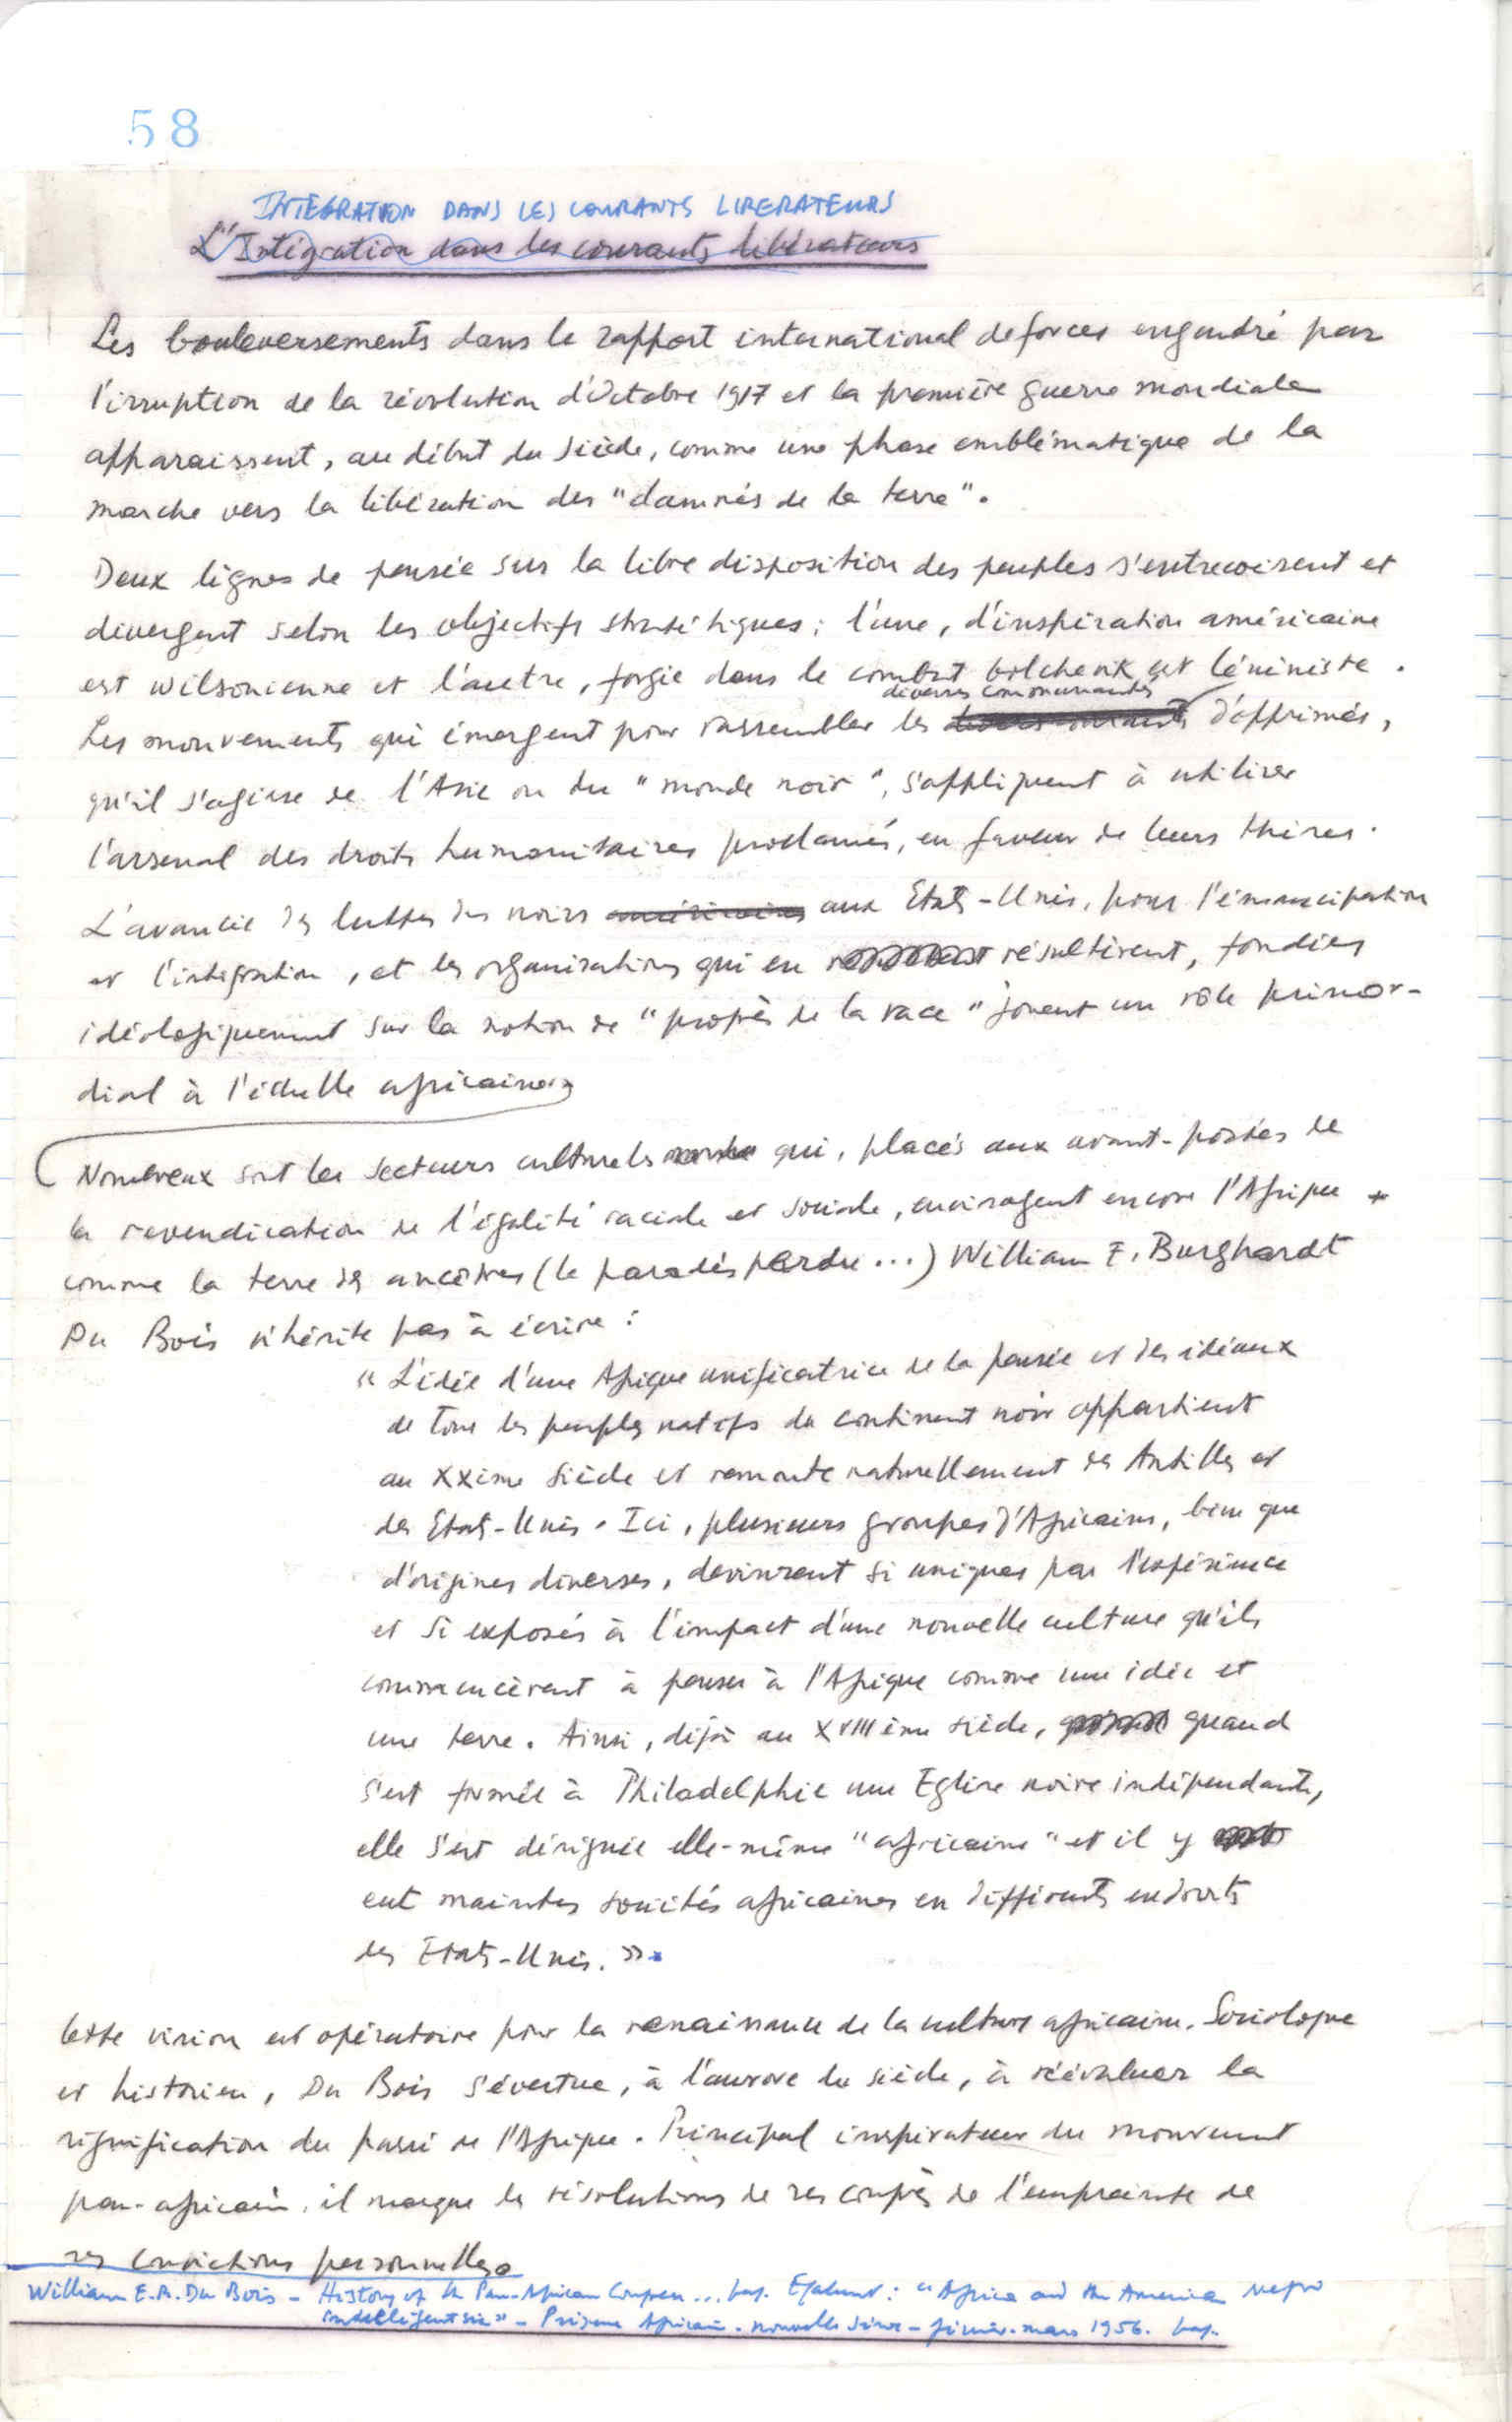 58
INTEGRATION DANS LES COURANTS LIBERATEURS
L'Intégration dans les courants libérateurs
Les bouleversements dans le rapport international de forces engendré par
l'irruption de la révolution d'Octobre 1917 et la première guerre mondiale
apparaissent, au début du siècle, comme une phase emblématique de la
marche vers la libération des "damnés de la terre".
Deux lignes de pensée sur la libre disposition des peuples s'entrecroisent et
divergent selon les objectifs stratégiques : l'une, d'inspiration américaine
est wilsonienne et l'autre, forgée dans le combat bolchevik est léniniste.
diverses communautés
Les mouvements qui émergent pour rassembler les d'opprimés,
qu'il s'agisse de l'Asie ou du "monde noir", s'appliquent à utiliser
l'arsenal des droits humanitaires proclamés, en faveur de leurs thèses.
L'avancée des luttes des noirs américains aux Etats-Unis, pour l'émancipation
et l'intégration, et les organisations qui en résultèrent, fondées
idéologiquement sur la notion de "progrès de la race" jouent un rôle primor-
dial à l'échelle africaine.
Nombreux sont les secteurs culturels qui, placés aux avant-postes de
la revendication de l'égalité raciale et sociale, envisagent encore l'Afrique *
comme la terre des ancêtres (le paradis perdu...) William E. Burghardt
Du Bois n'hésite pas à écrire :
"L'idée d'une Afrique unificatrice de la pensée et des idéaux
de tous les peuples natifs du continent noir appartient
au XXème siècle et remonte naturellement des Antilles et
des Etats-Unis. Ici, plusieurs groupes d'Africains, bien que
d'origines diverses, devinrent si uniques par l'expérience
et si exposés à l'impact d'une nouvelle culture qu'ils
commencèrent à penser à l'Afrique comme une idée et
une terre. Ainsi, déjà au XVIIIème siècle, quand
s'est formée à Philadelphie une Eglise noire indépendante,
elle s'est désignée elle-même "africaine" et il y
eut maintes sociétés africaines en différents endroits
des Etats-Unis. ».
Cette vision est opératoire pour la renaissance de la culture africaine. Sociologue
et historien, Du Bois s'évertue, à l'aurore du siècle, à réévaluer la
signification du passé de l'Afrique. Principal inspirateur du mouvement
pan-africain, il marque les résolutions de ses congrès de l'empreinte de
ses convictions personnelles.
William E.B. Du Bois - History of the Pan-African Congress... Egalement : "Africa and the American Negro
intelligentsia" - Présence Africaine - nouvelle série - février-mars 1956.